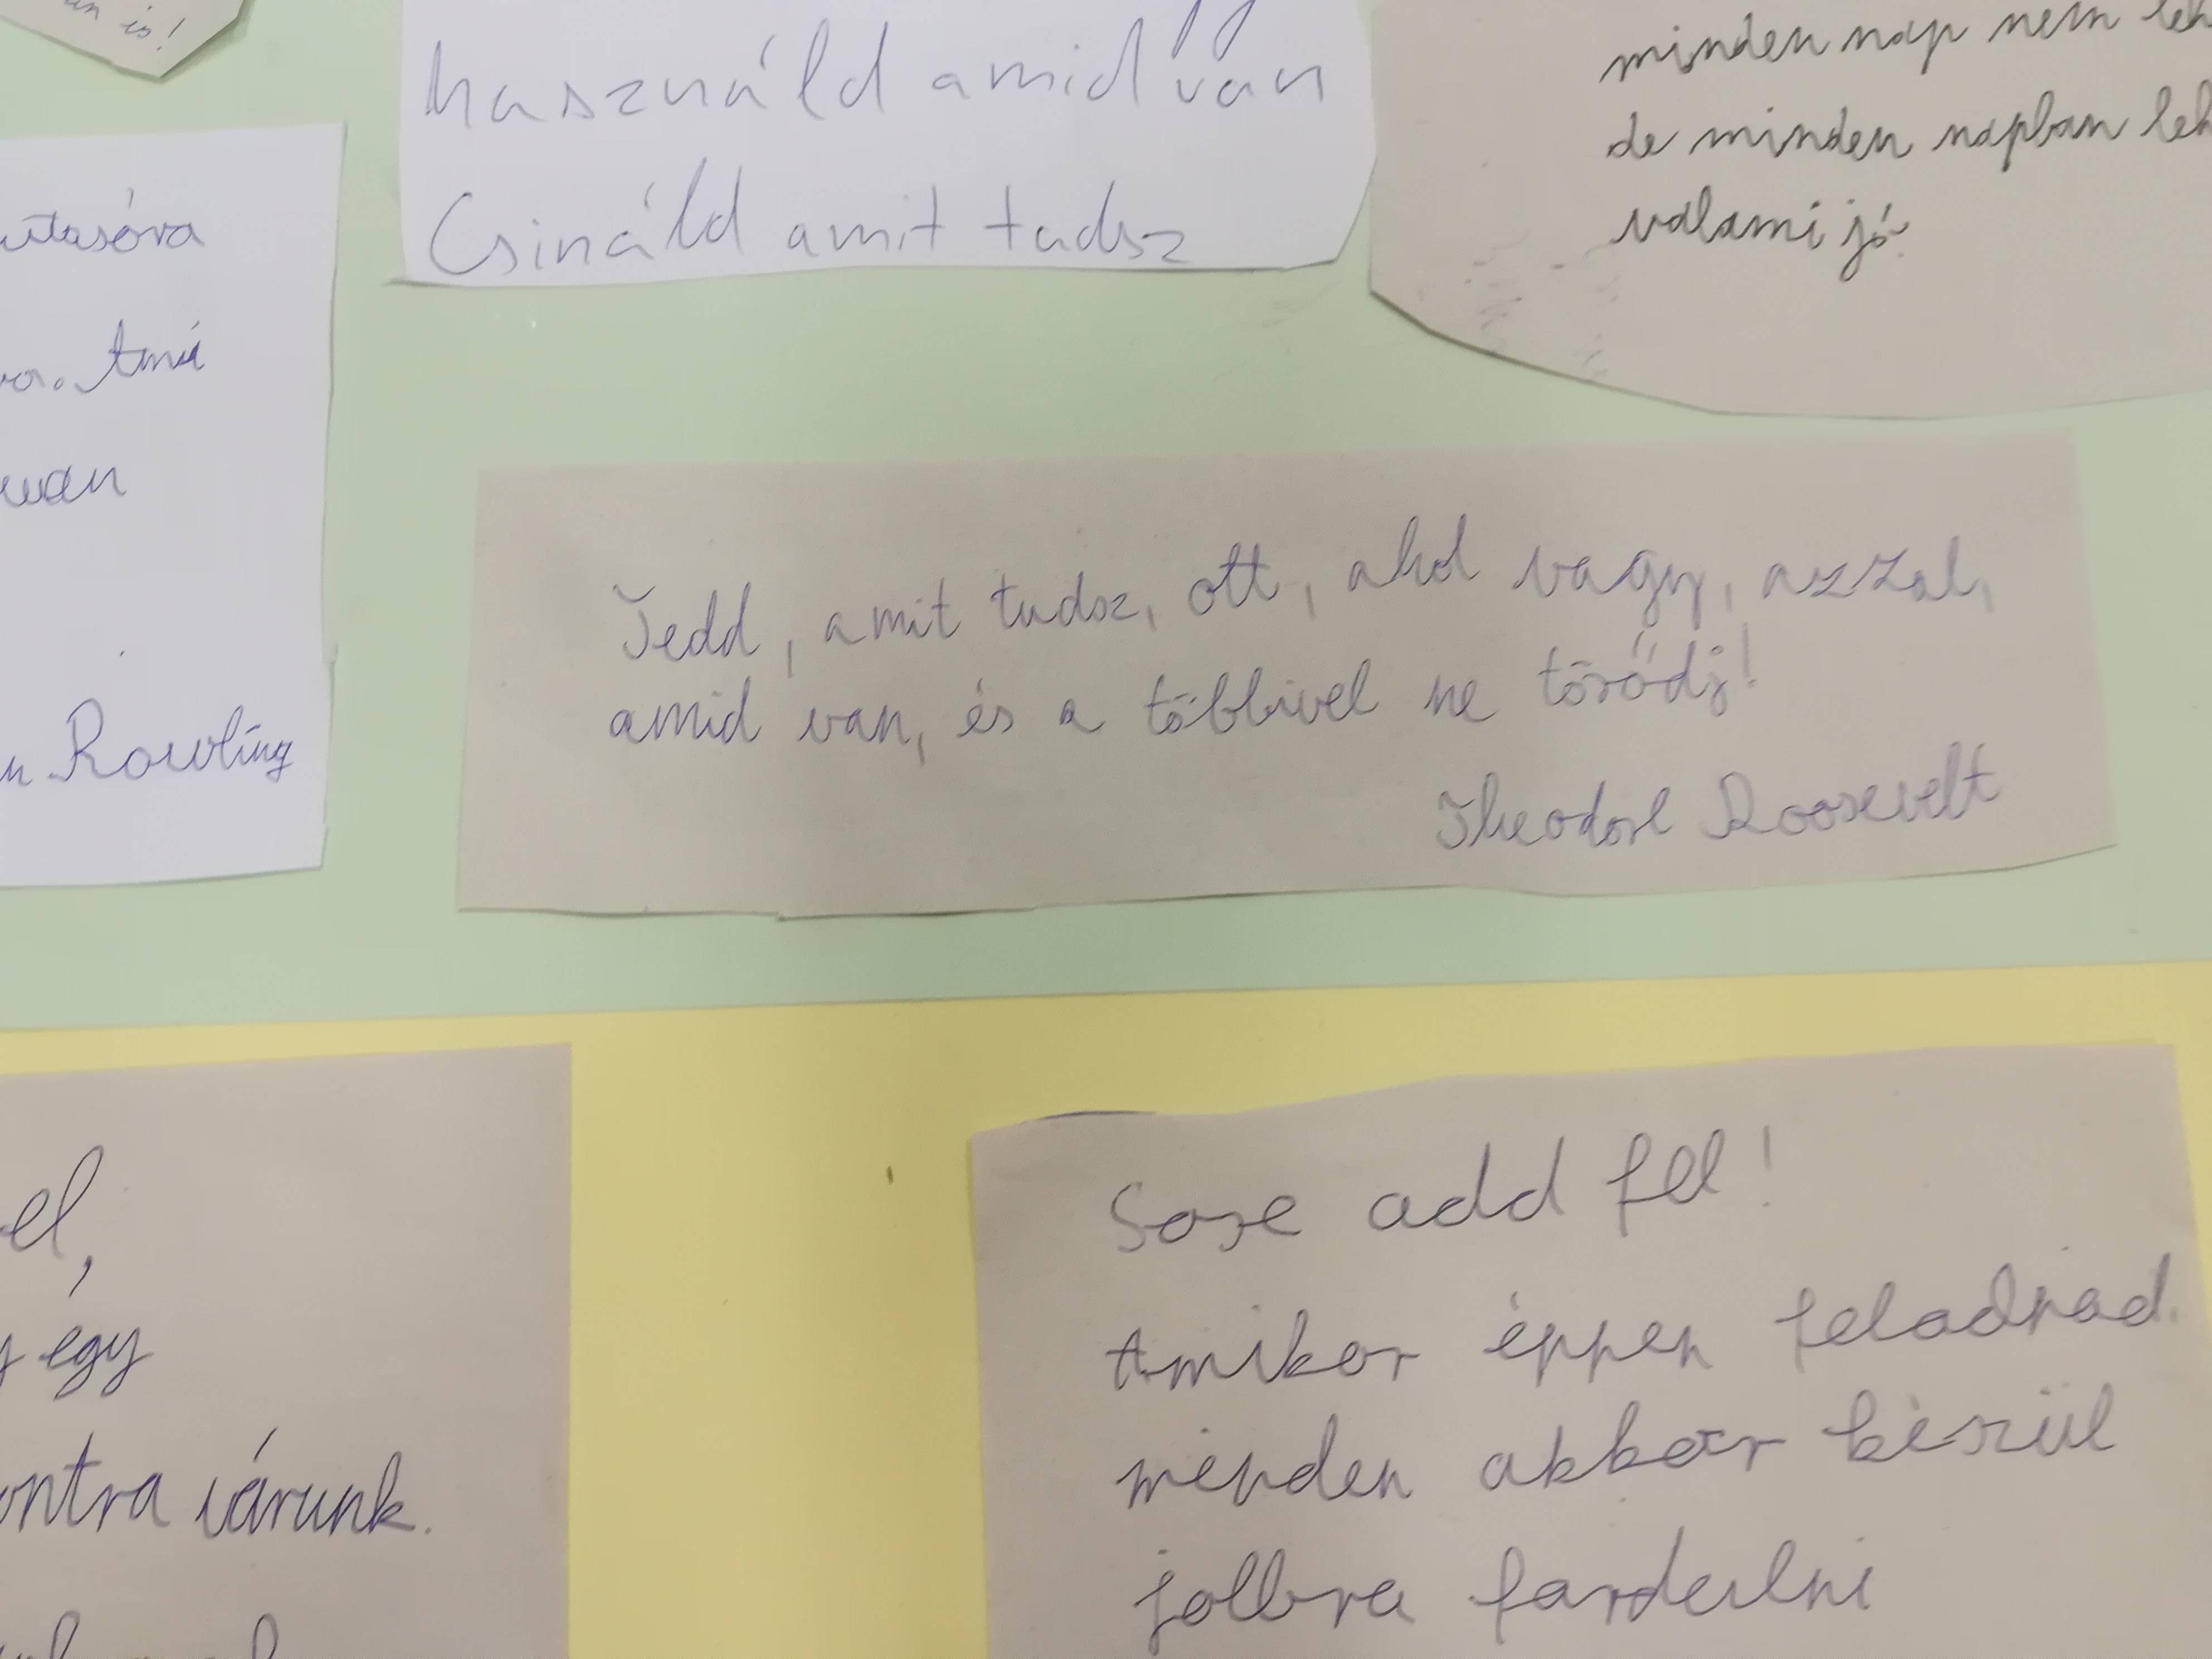 is!
használd amid van
Csináld amit tudsz
minden nap nem
de minden napban
valami jó.
Ami
Rowling
Tedd, amit tudsz, ott, ahol vagy, azzal,
amid van, és a többivel ne törődj!
Theodore Roosevelt
el,
egy
várunk.
Sose add fel!
Amikor éppen feladnád
minden akkor készül
jobbra fordulni